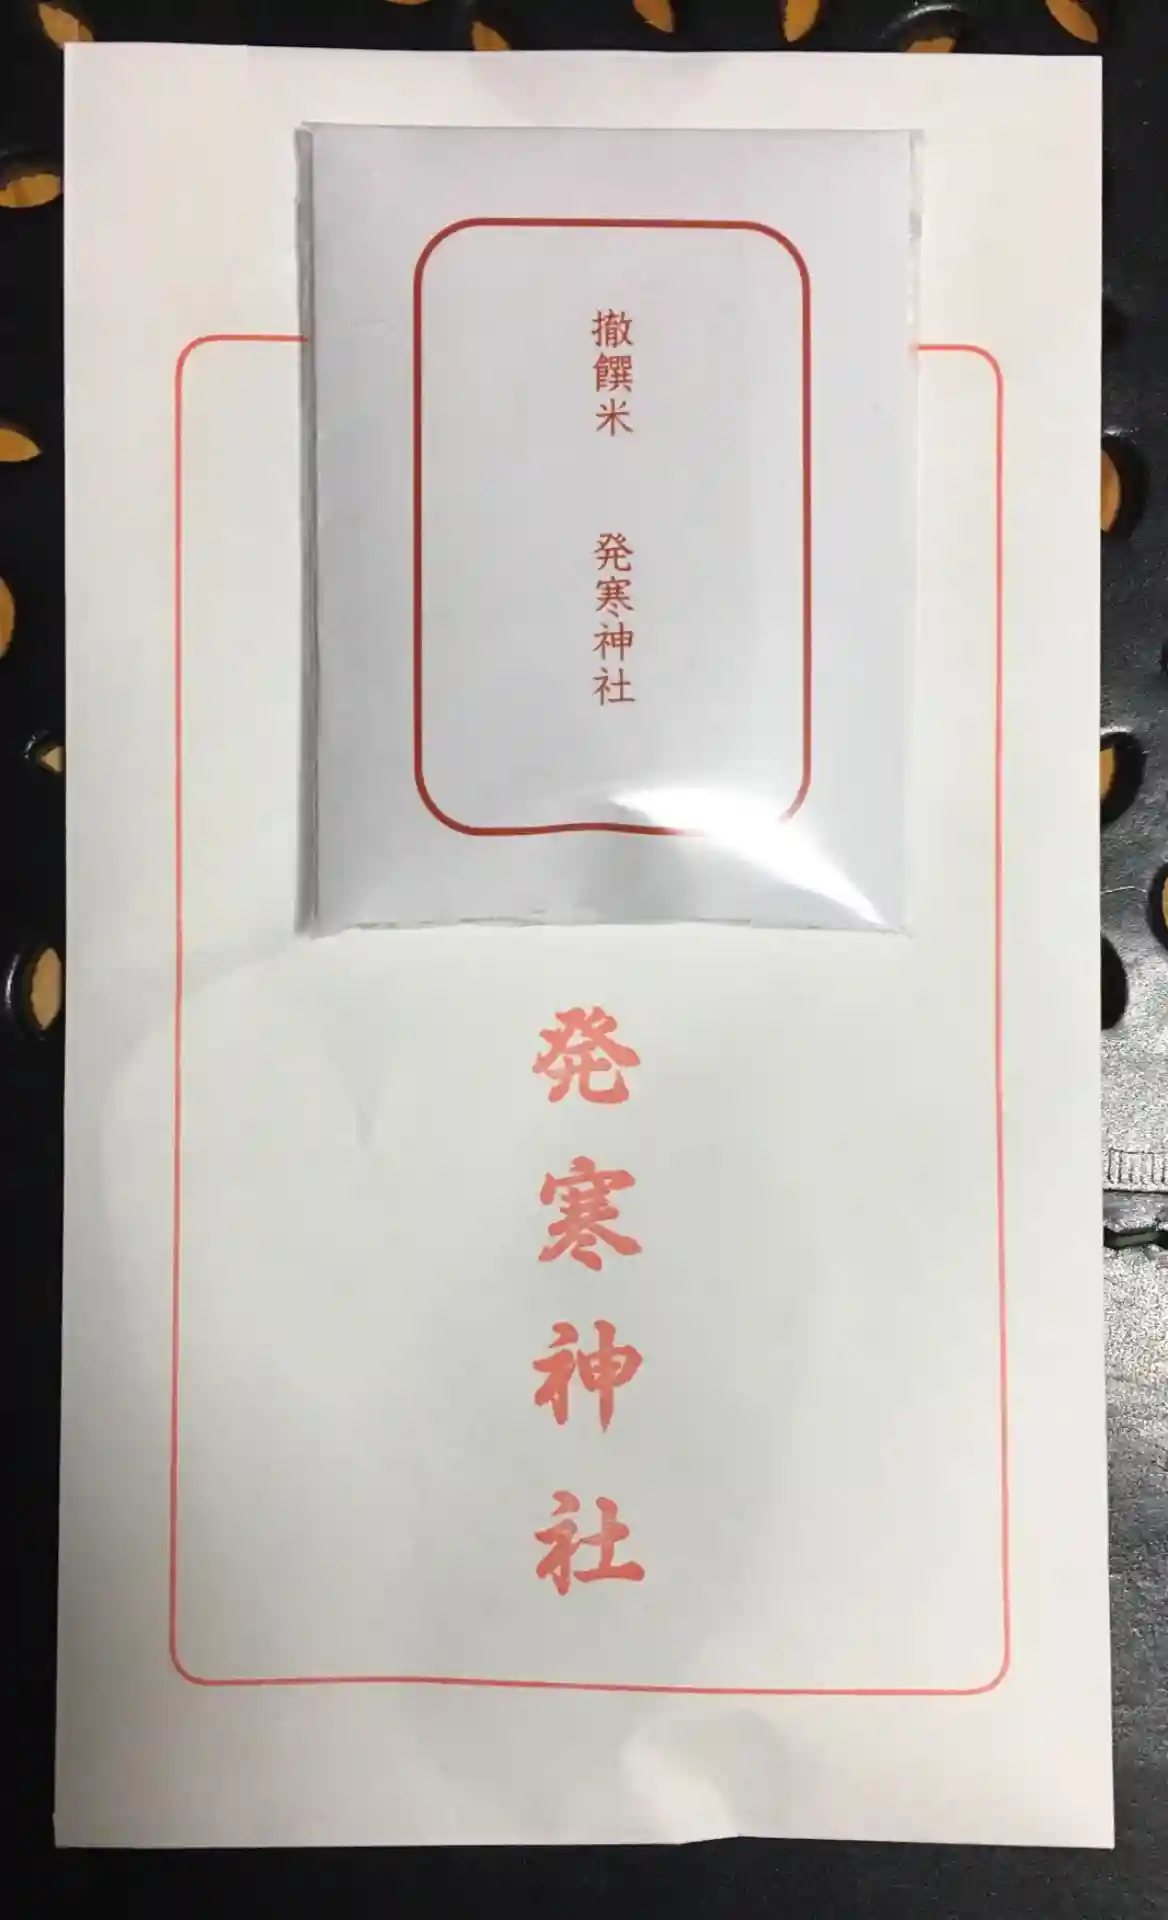 撤饌米 発寒神社
発寒神社